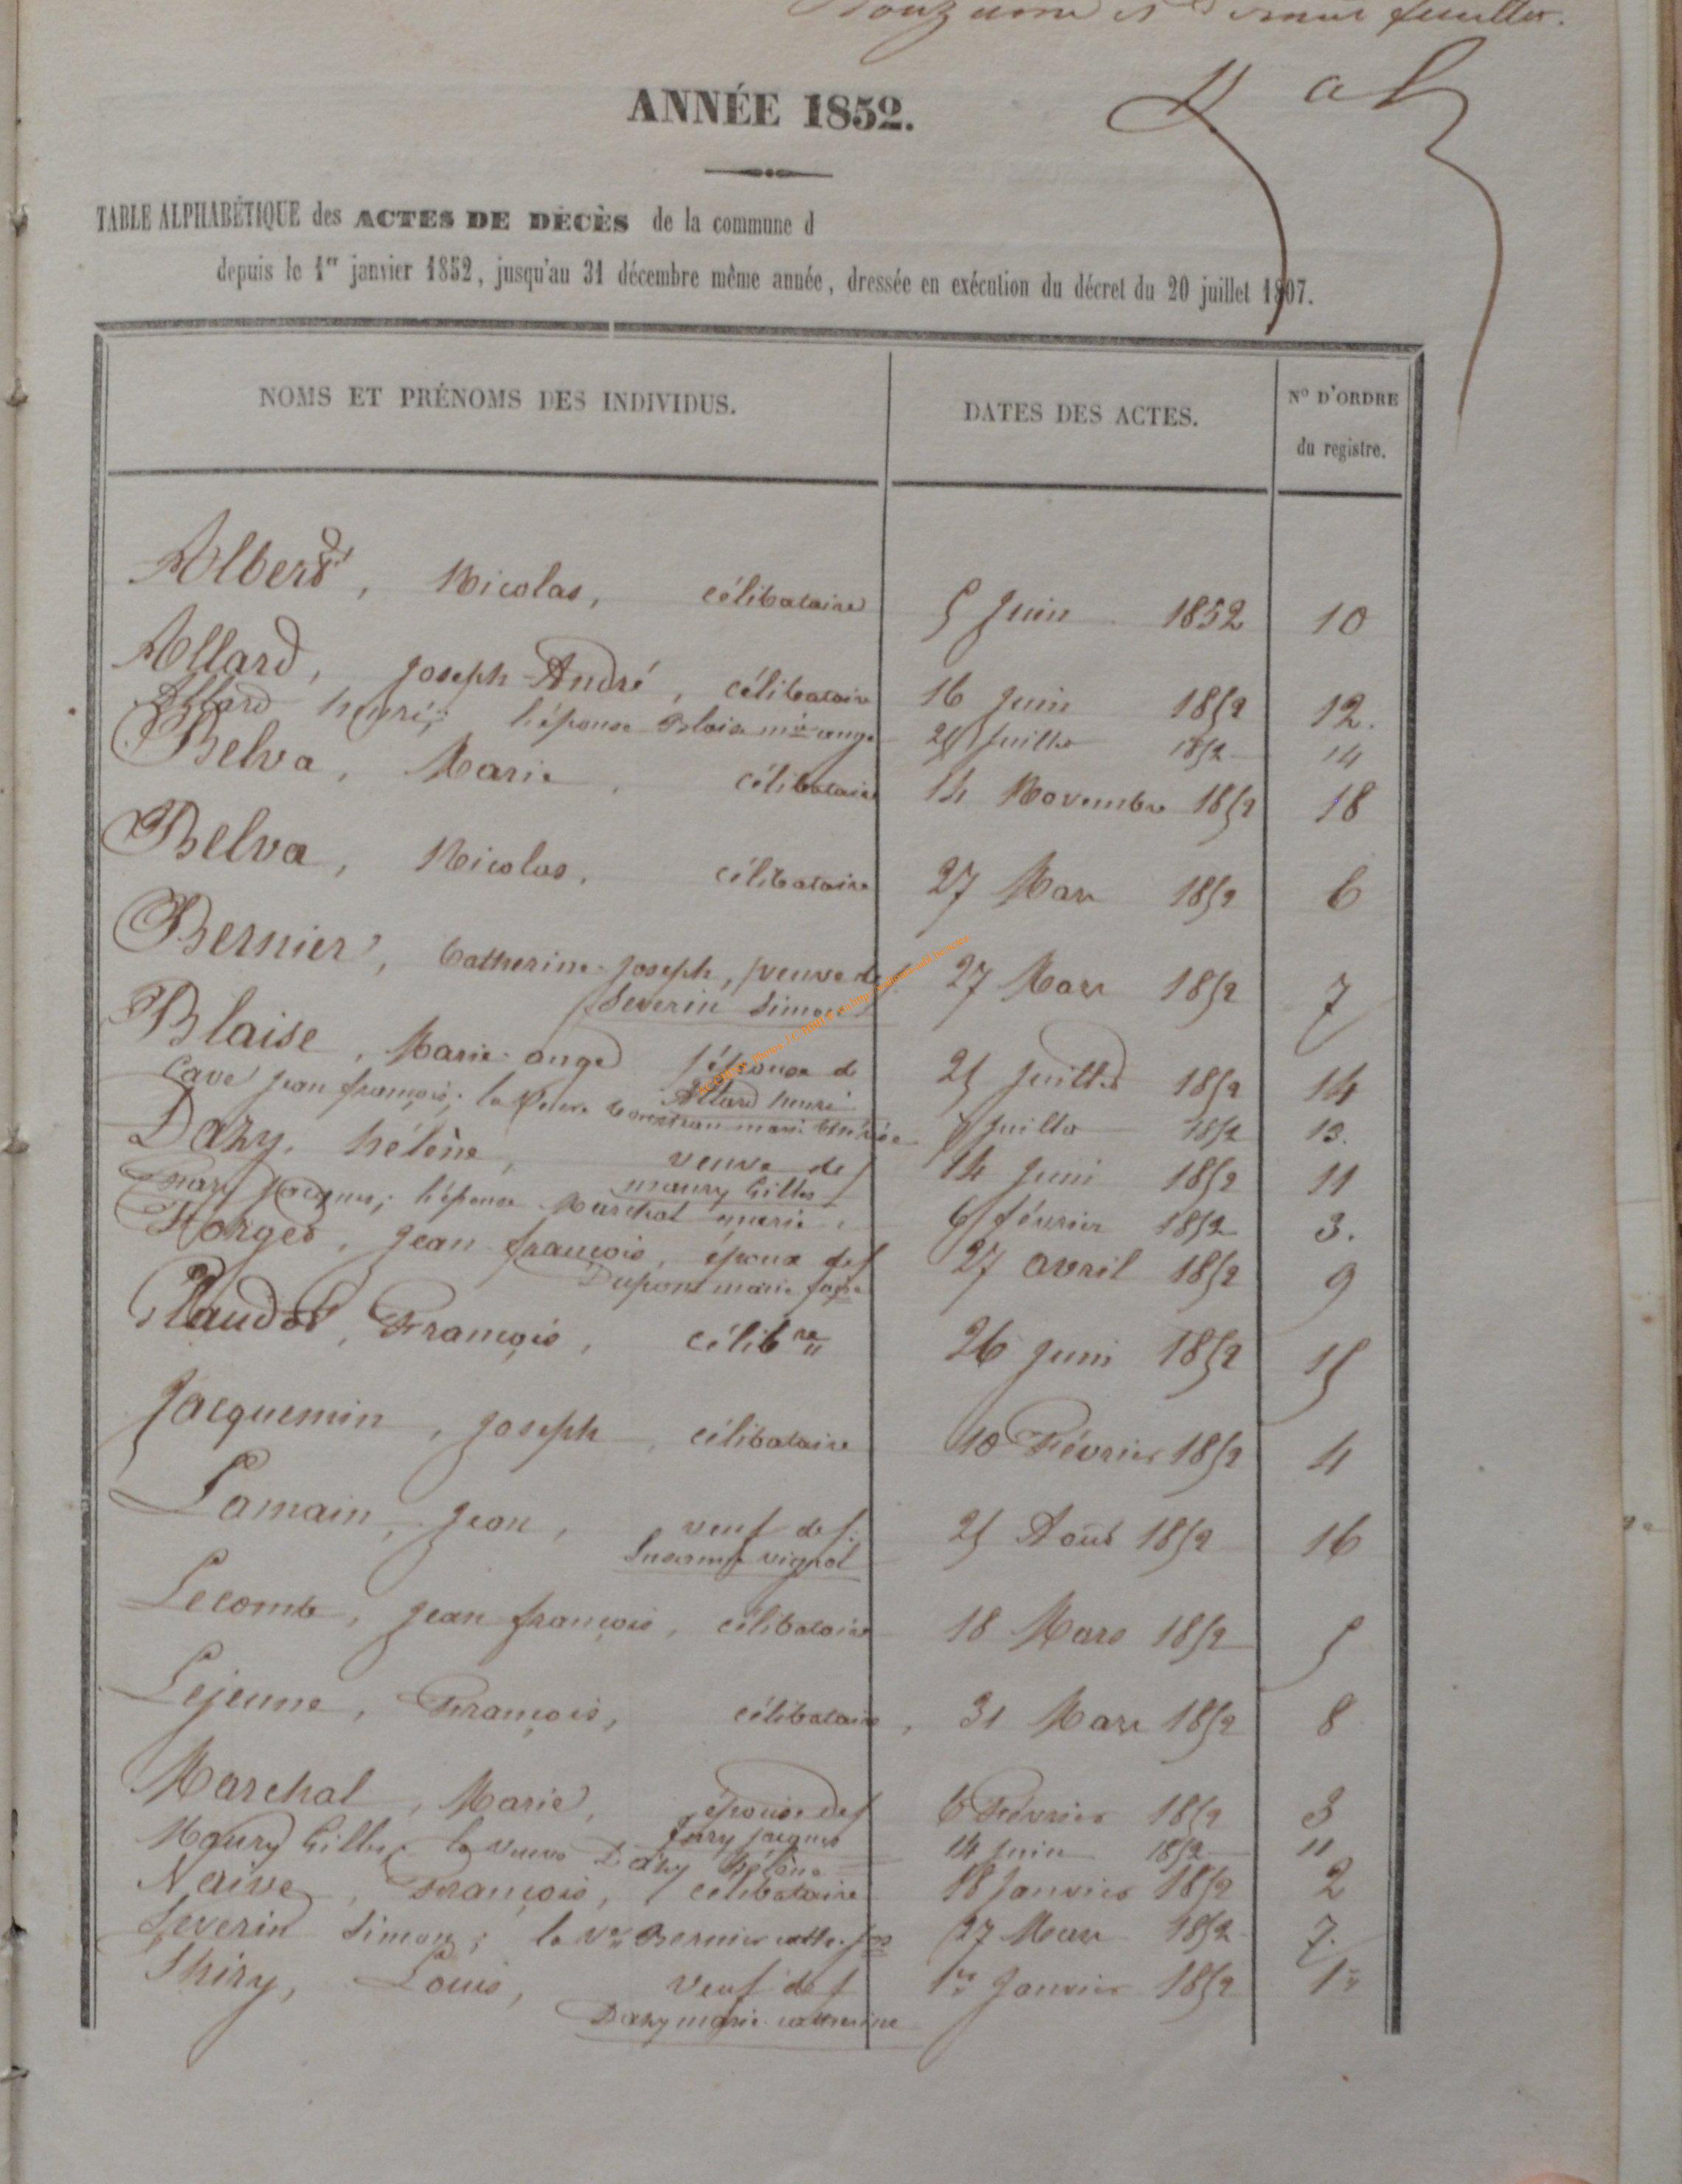 feuillet.
ANNÉE 1852.
TABLE ALPHABÉTIQUE des ACTES DE DÉCÈS de la commune d
depuis le 1er janvier 1852, jusqu'au 31 décembre même année, dressée en exécution du décret du 20 juillet 1807.
NOMS ET PRÉNOMS DES INDIVIDUS. DATES DES ACTES. No D'ORDRE
du registre.
Albert, Nicolas, célibataire 5 Juin 1852 10
Allard, Joseph-André, célibataire 16 Juin 1852 12.
Allard henri; l'épouse Blaise mie ange 25 Juillet 1852 14
Belva, Marie, célibataire 14 Novembre 1852 18
Belva, Nicolas, célibataire 27 Mars 1852 6
Bernier, Catherine-Joseph, veuve de f
Severin Simon 27 Mars 1852 7
Blaise, Marie-ange l'épouse de
Allard henri 25 Juillet 1852 14
Cave jean françois; la veuve marie thérèse 7 Juillet 1852 13.
Dazy, hélène, veuve de f
maury Gilles 14 Juin 1852 11
jacques; l'épouse Marchal marie 6 février 1852 3.
jean françois, époux de f
Dupont marie 27 avril 1852 9
François, célibre 26 Juin 1852 15
Jacquemin, Joseph, célibataire 10 Février 1852 4
Lamain, Jean, veuf de f.
vignol 25 Août 1852 16
Lecomte, Jean françois, célibataire 18 Mars 1852 5
Lejeune, François, célibataire, 31 Mars 1852 8
Marchal, Marie, épouse de f
jacques 6 Février 1852 3
Maury Gilles; la veuve Dazy hélène 14 Juin 1852 11
Naive, François, célibataire 18 Janvier 1852 2
Severin Simon; la Ve Bernier cathe. jos 27 Mars 1852 7.
Thiry, Louis, veuf de f
Dazy marie catherine 1er Janvier 1852 1er